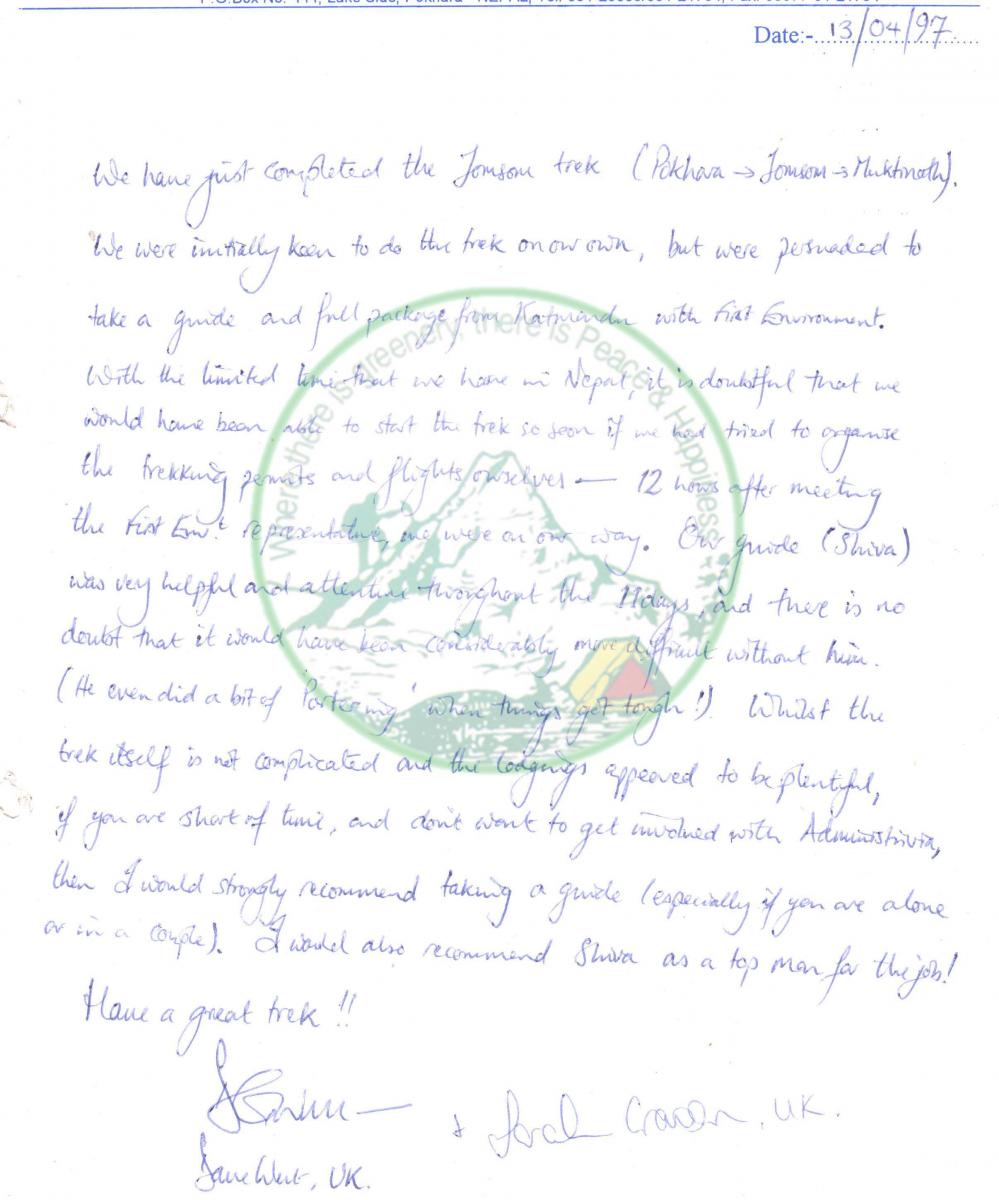 Date:- 13/04/97
We have just completed the Jomsom trek (Pokhara → Jomsom → Muktinath).
We were initially keen to do the trek on our own, but were persuaded to
take a guide and full package from Katmandu with First Environment.
With the limited time that we have in Nepal, it is doubtful that we
would have been able to start the trek so soon if we had tried to organise
the trekking permits and flights ourselves — 12 hours after meeting
the First Env.t representative, we were on our way. Our guide (Shiva)
was very helpful and attentive throughout the 11 days, and there is no
doubt that it would have been considerably more difficult without him.
(He even did a bit of 'Portering' when things got tough!) Whilst the
trek itself is not complicated and the lodgings appeared to be plentiful,
if you are short of time, and don't want to get involved with Administrivia,
then I would strongly recommend taking a guide (especially if you are alone
or in a couple). I would also recommend Shiva as a top man for the job!
Have a great trek!!
+ Sarah UK.
UK.
Where there is greenery, there is Peace & Happiness